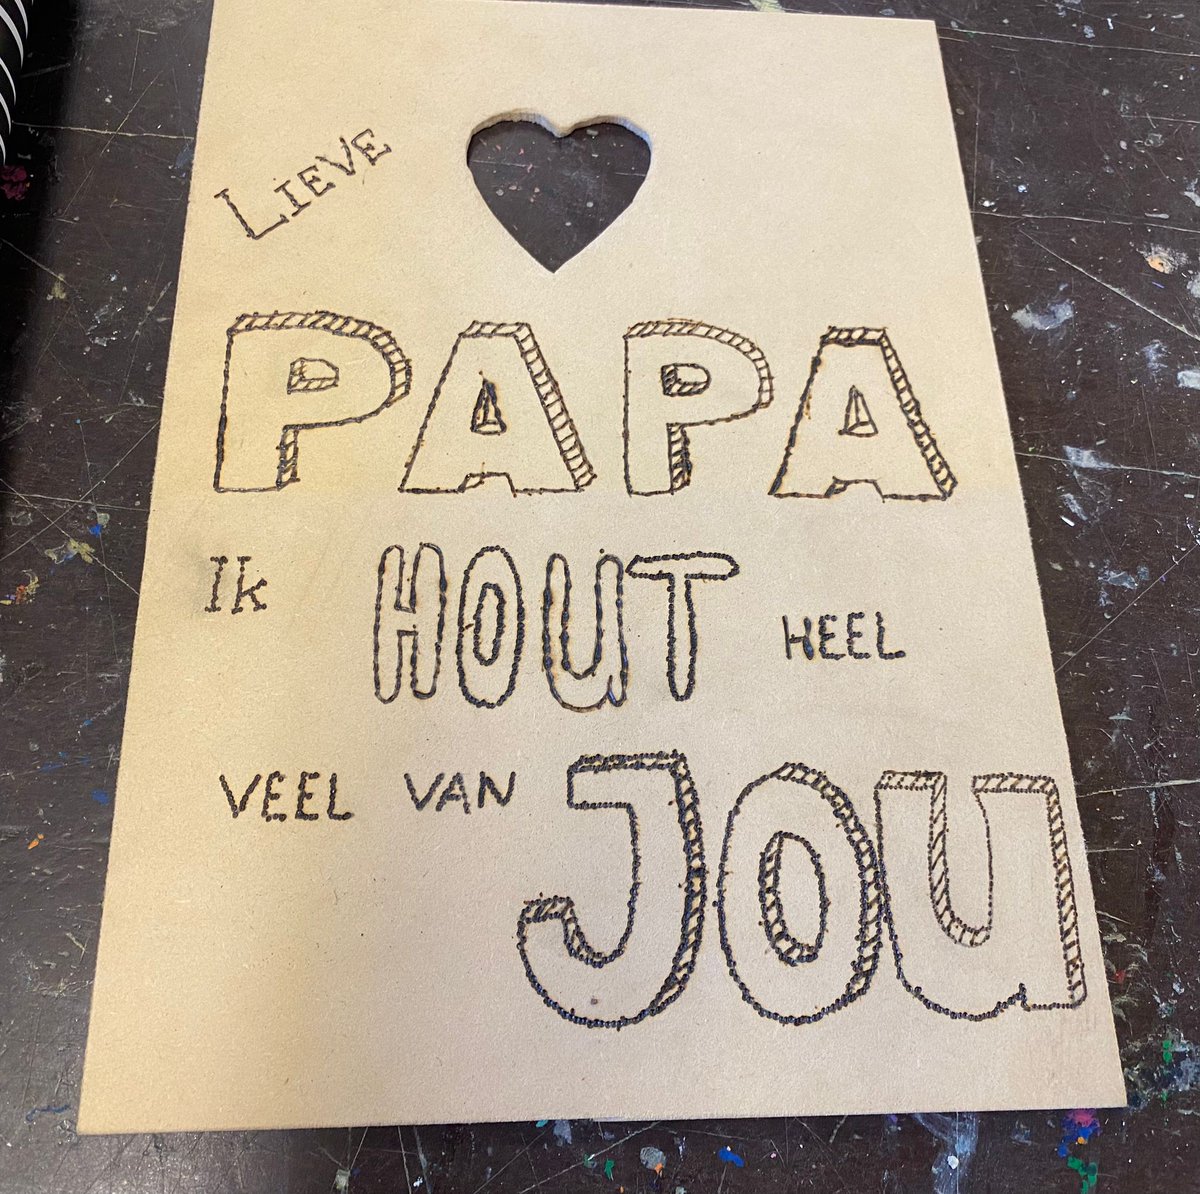 LIEVE
PAPA
Ik HOUT HEEL
VEEL VAN JOU